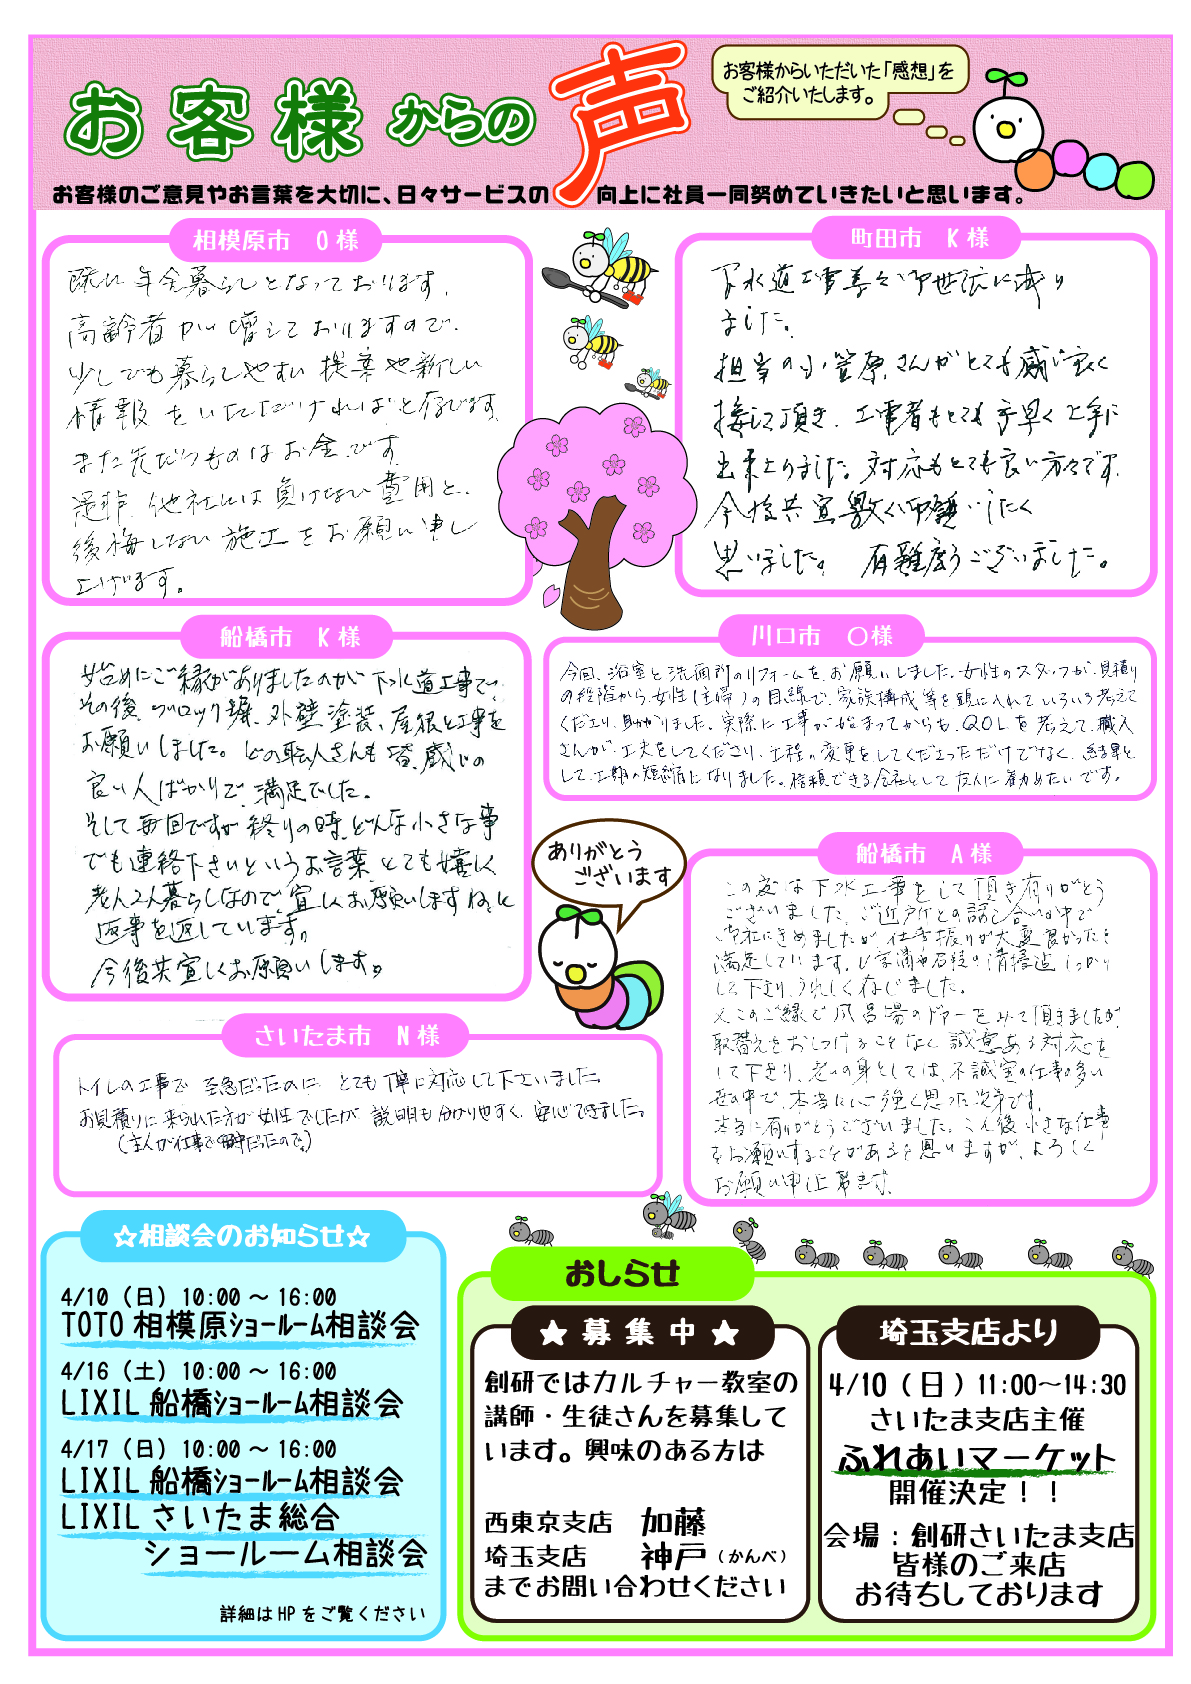 お客様からの声
お客様からいただいた「感想」を
ご紹介いたします。
お客様のご意見やお言葉を大切に、日々サービスの向上に社員一同努めていきたいと思います。
相模原市　O様
既に年金暮らしとなっております。
高齢者が増しておりますので、
少しでも暮らしやすい提案や新しい
情報をいただければと存じます。
また先だつものはお金です
是非、他社には負けない費用と、
後悔しない施工をお願い申し
上げます。
町田市　K様
下水道工事等々御世話に成り
ました。
担当の小笠原さんがとても感じ良く
接して頂き、工事者もとても手早く上手に
出来上りました。対応もとても良い方々です。
今後共宜敷く御願いしたく
思いました。　有難度うございました。
船橋市　K様
始めにご縁がありましたのが下水道工事で、
その後、ブロック塀、外壁塗装、屋根と工事を
お願いしました。どの職人さんも皆、感じの
良い人ばかりで、満足でした。
そして毎回ですが終りの時、どんな小さな事
でも連絡下さいというお言葉、とても嬉しく
老人2人暮らしなので、宜しくお願いしますね、と
返事を返しています。
今後共宜しくお願いします。
川口市　〇様
今回、浴室と洗面所のリフォームをお願いしました。女性のスタッフが、見積り
の段階から、女性（主婦）の目線で、家族構成等を頭に入れていろいろ考えて
くださり、助かりました。実際に工事が始まってからも、QOLを考えて、職人
さんが、工夫をしてくださり、工程の変更をしてくださっただけでなく、結果と
して、工期の短縮になりました。信頼できる会社として友人に勧めたいです。
ありがとう
ございます
船橋市　A様
この度は下水工事をして頂き有りがとう
ございました。ご近所との話し合いの中で
御社にきめましたが、仕事振りが大変良かったと
満足しています。
して下さり、うれしく存じました。
又このご縁で風呂場のドアーをみて頂きましたが、
取替えをおしつけることなく誠意ある対応を
して下さり、老いの身としては、不誠実の仕事の多い
世の中で、本当に心強く思った次第です。
本当に有りがとうございました。こん後小さな仕事
をお願いすることがあると思いますが、よろしく
お願い申上げます。
さいたま市　N様
トイレの工事で至急だったのに、とても丁寧に対応して下さいました。
お見積りに来られた方が女性でしたが、説明も分かりやすく、安心できました。
（主人が仕事で留守だったので。）
☆相談会のお知らせ☆
4/10（日）10:00～16:00
TOTO相模原ショールーム相談会
4/16（土）10:00～16:00
LIXIL船橋ショールーム相談会
4/17（日）10:00～16:00
LIXIL船橋ショールーム相談会
LIXILさいたま総合
ショールーム相談会
詳細はHPをご覧ください
おしらせ
★募集中★
創研ではカルチャー教室の
講師・生徒さんを募集して
います。興味のある方は
西東京支店　加藤
埼玉支店　神戸（かんべ）
までお問い合わせください
埼玉支店より
4/10（日）11:00～14:30
さいたま支店主催
ふれあいマーケット
開催決定！！
会場：創研さいたま支店
皆様のご来店
お待ちしております